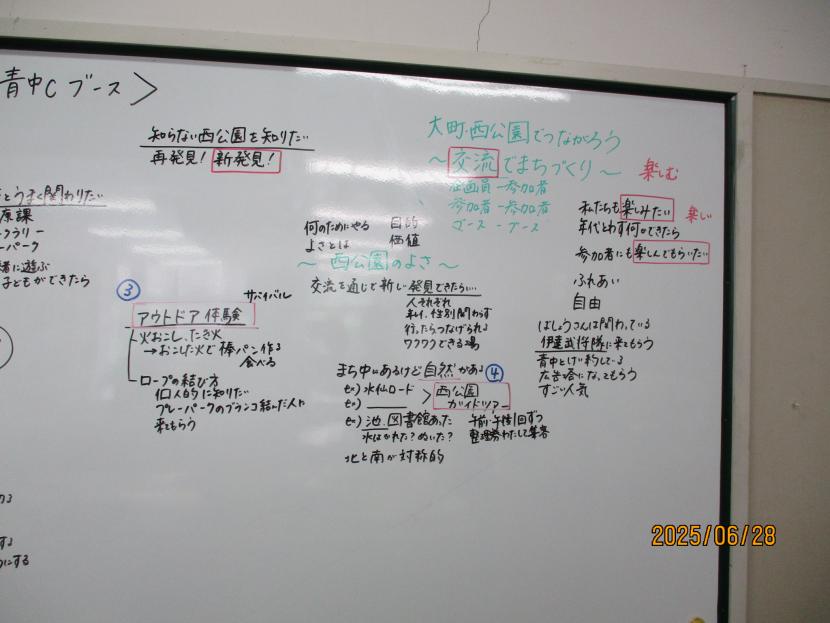 青中C ブース＞
知らない西公園を知りたい
再発見! 新発見!
とうまく関わりたい
原課
クラリー
ーパーク
者に遊ぶ
子どもができたら
③
サバイバル
アウトドア体験
火おこし、たき火
→おこした火で棒パン作る
食べる
ロープの結び方
個人的に知りたい
プレーパークのブランコ結んだ人に
来てもらう
大町・西公園でつながろう
～交流でまちづくり～
企画員ー参加者
参加者ー参加者
ブースーブース
何のためにやる 目的
よさとは 価値
～西公園のよさ～
交流を通じて新しい発見できたらい…
人それぞれ
年代、性別関わらず
行ったらつなげられる
ワクワクできる場
まち中にあるけど自然がある ④
ex) 水仙ロード
ex)
＞西公園
ガイドツアー
ex) 池、図書館あった
水はかれた?ぬいた?
午前・午後1回ずつ
整理券わたして集客
北と南が対称的
楽しむ
私たちも楽しみたい
楽しい
年代とわず何かできたら
参加者にも楽しんでもらいたい
ふれあい
自由
ばしょうさんは関わっている
伊達武将隊に来てもらう
青中とけい約している
広告塔になってもらう
すごい人気
する
にする
2025/06/28